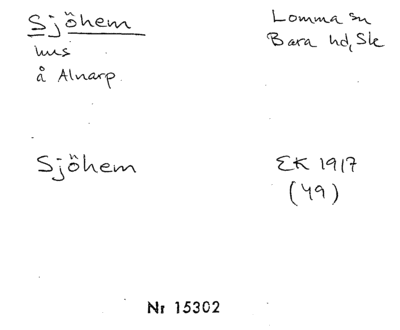 Sjöhem
Lomma sn
hus
Bara hd, Sk
å Alnarp
Sjöhem
EK 1917
(49)
Nr 15302